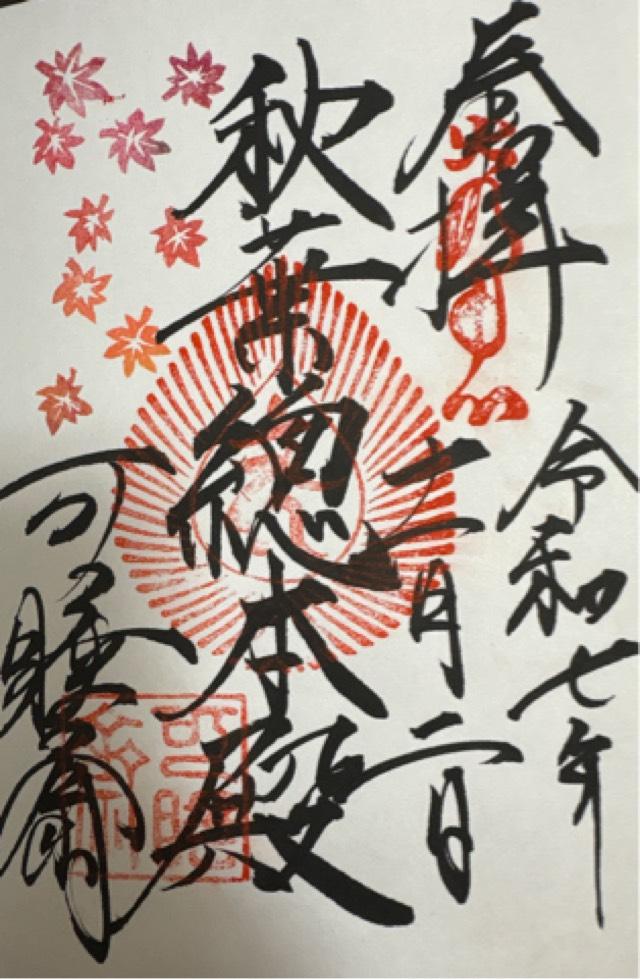 奉拝
令和七年
十一月二日
秋葉總本殿
可睡斎